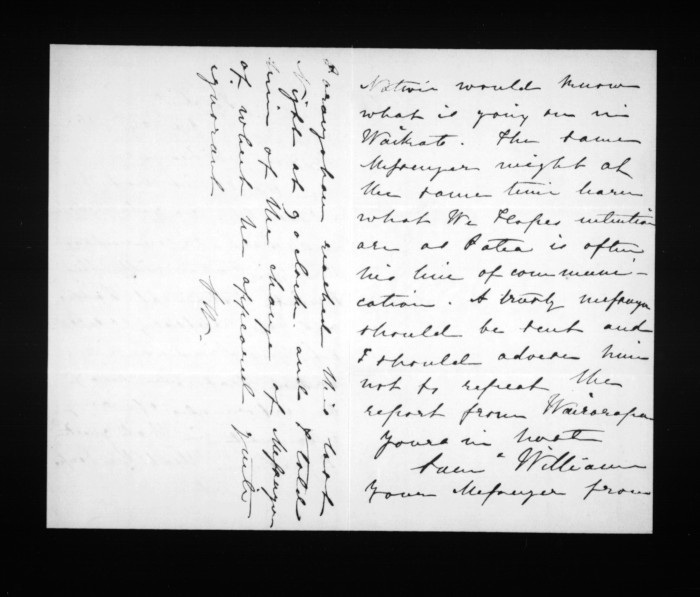 Native would know
what is going on in
Waikato. The same
Messenger might at
the same time learn
what We Hopes intention
are as Patea is often
his line of communi-
cation. A trusty messenger
should be sent and
I should advise him
not to repeat the
report from Wairarapa
Yours in haste
Sam Williams
Your Messenger from
reached this last
Night at 9 oclock and I told
him of the change of Messenger
of what he appeared quite
ignorant
SW